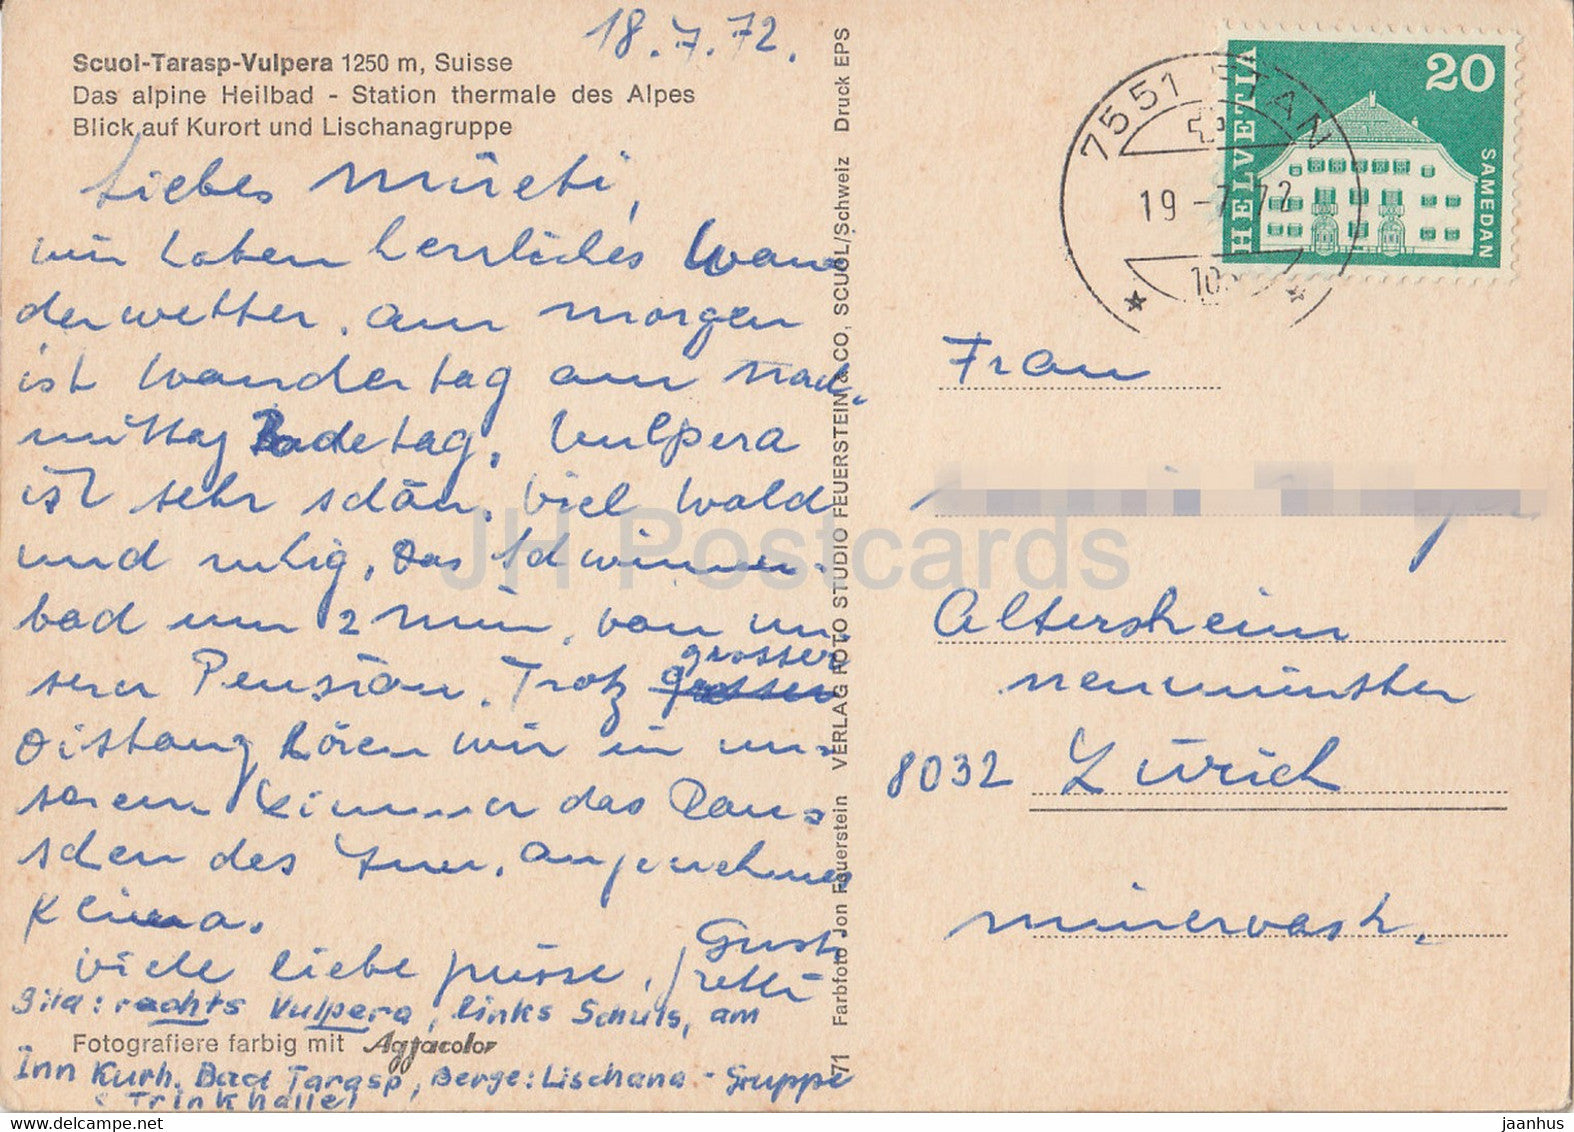 18.7.72.
Scuol-Tarasp-Vulpera 1250 m, Suisse
Das alpine Heilbad - Station thermale des Alpes
Blick auf Kurort und Lischanagruppe
Liebes Müeti,
wir haben herrliches Wan-
derwetter. am morgen
ist Wandertag am nach-
mittag Badetag. Vulpera
ist sehr schön. Viel Wald
und ruhig. Das Schwimm-
bad nur 2 min. von un-
serer Pension. Trotz grosser
Distanz hören wir in un-
serem Zimmer das Rau-
schen des Inn. angenehmes
Klima.
viele liebe Grüsse,
Bild: rechts Vulpera, links Schuls, am
Fotografiere farbig mit Agfacolor
Inn Kurh. Bad Tarasp, Berge: Lischana-Gruppe
Trinkhalle!
71 Farbfoto Jon Feuerstein VERLAG FOTO STUDIO FEUERSTEIN & CO, SCUOL/Schweiz Druck EPS
7551 FTAN
19-7 72
HELVETIA
20
SAMEDAN
Frau
Altersheim
neumünster
8032 Zürich
minervastr.
JH Postcards
delcampe.net
jaanhus